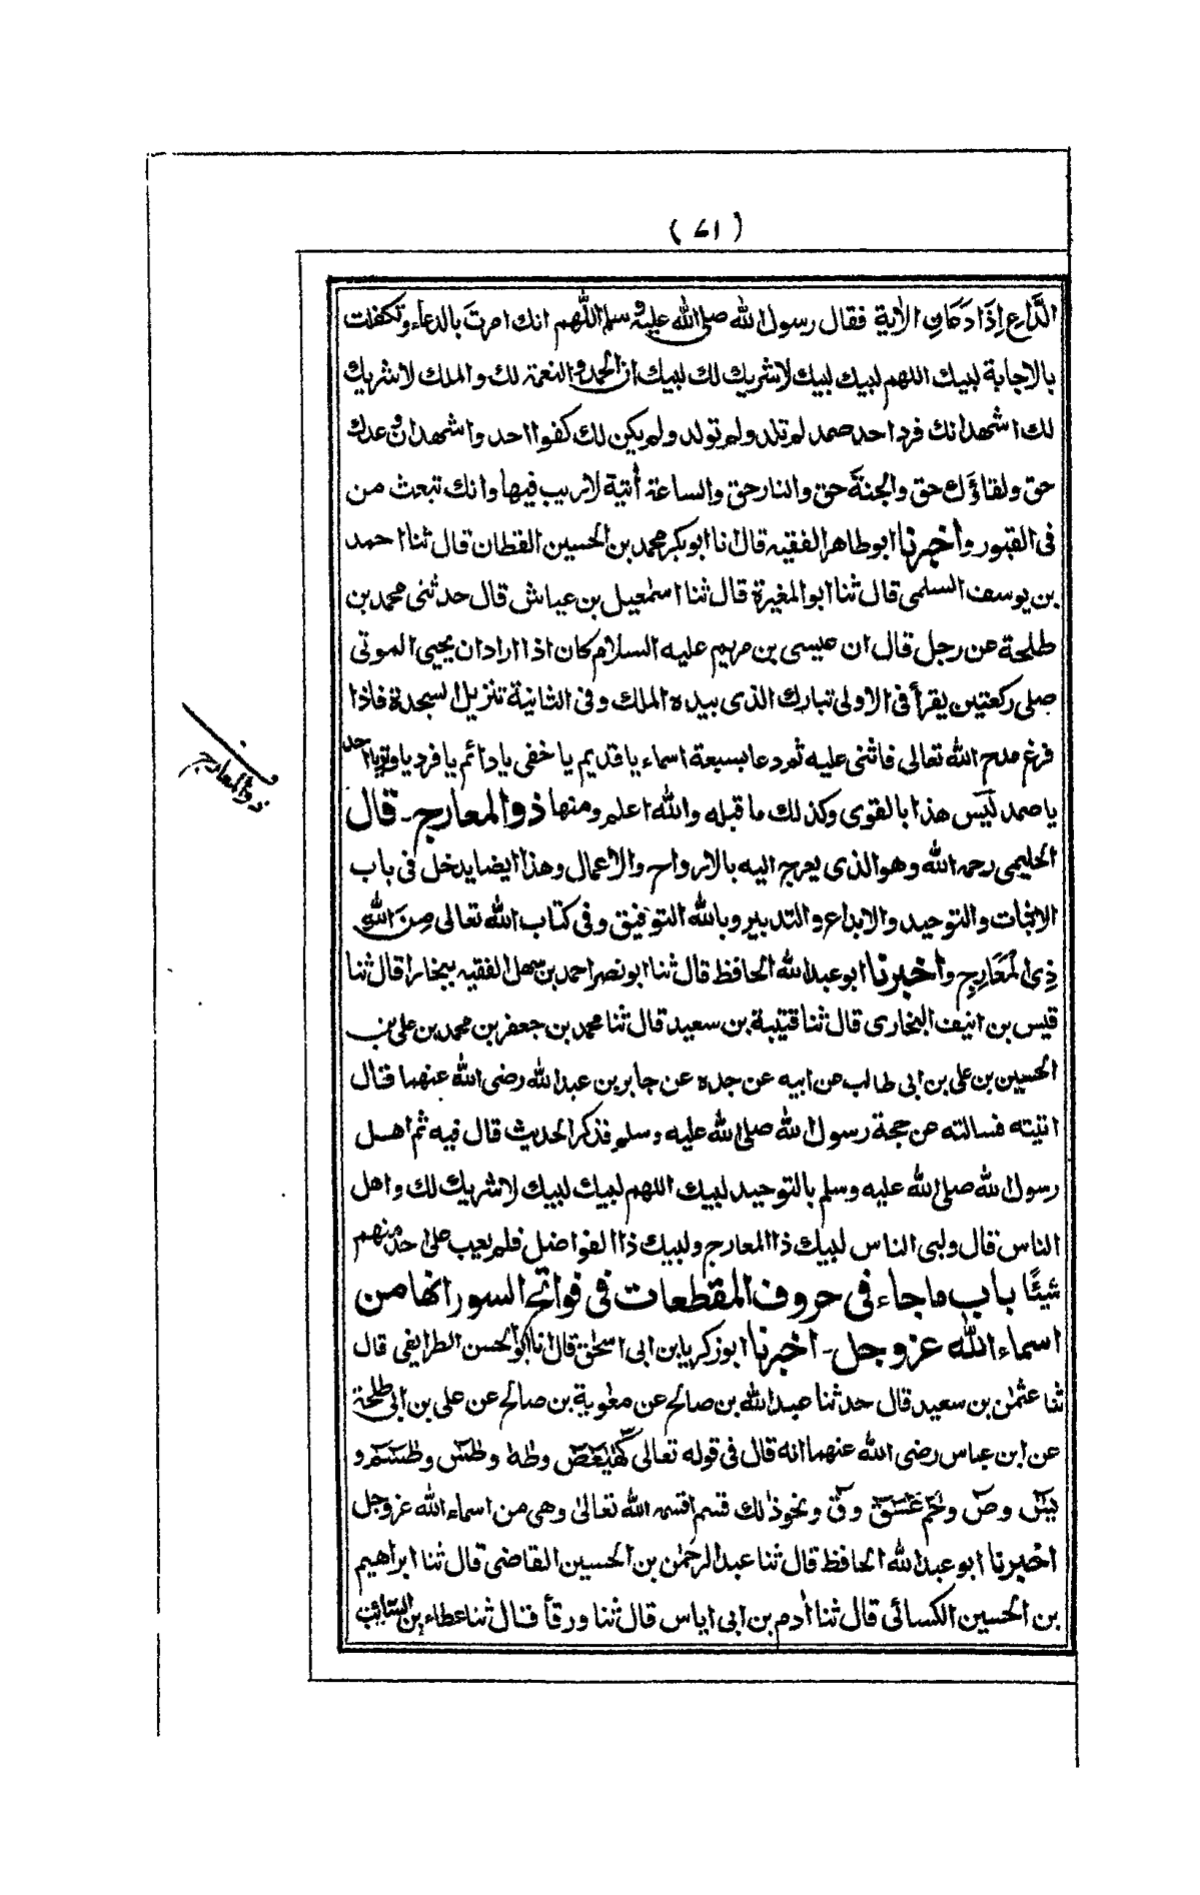 (۷۱)
الدَّاعِ إِذَا دَعَانِ الاٰية فقال رسول الله صلى الله عليه وسلم اللّٰهم انك امرتَ بالدعاء وتكفلت
بالاجابة لبيك اللهم لبيك لبيك لاشريك لك لبيك ان الحمد والنعمة لك والملك لاشريك
لك اشهد انك فرد احد صمد لم تلد ولم تولد ولم يكن لك كفوا احد واشهد ان وعدك
حق ولقاؤك حق والجنة حق والنار حق والساعة اٰتية لاريب فيها وانك تبعث من
فى القبور واخبرنا ابوطاهر الفقيه قال انا ابوبكر محمد بن الحسين القطان قال ثنا احمد
بن يوسف السلمى قال ثنا ابو المغيرة قال ثنا اسمٰعيل بن عياش قال حدثنى محمد بن
طلحة عن رجل قال ان عيسى بن مريم عليه السلام كان اذا اراد ان يحيى الموتى
صلى ركعتين يقرأ فى الاولى تبارك الذى بيده الملك وفى الثانية تنزيل السجدة فاذا
فرغ مدح الله تعالى فاثنى عليه ثم دعا بسبعة اسماء يا قديم يا خفى يا دائم يا فرد يا وتر يا احد
يا صمد ليس هذا بالقوى وكذلك ما قبله والله اعلم ومنها ذو المعارج - قال
ذو المعارج
الحليمى رحمه الله وهو الذى يعرج اليه بالارواح والاعمال وهذا ايضا يدخل فى باب
الاثبات والتوحيد والابداع والتدبير وبالله التوفيق وفى كتاب الله تعالى مِنَ اللهِ
ذِى الْمَعَارِجِ واخبرنا ابو عبدالله الحافظ قال ثنا ابونصر احمد بن سهل الفقيه ببخارا قال ثنا
قيس بن انيف البخارى قال ثنا قتيبة بن سعيد قال ثنا محمد بن جعفر بن محمد بن على بن
الحسين بن على بن ابى طالب عن ابيه عن جده عن جابر بن عبدالله رضى الله عنهما قال
اتيته فسالته عن حجة رسول الله صلى الله عليه وسلم فذكر الحديث قال فيه ثم اهل
رسول الله صلى الله عليه وسلم بالتوحيد لبيك اللهم لبيك لبيك لاشريك لك واهل
الناس قال ولبى الناس لبيك ذا المعارج ولبيك ذا الفواضل فلم يعب على احد منهم
شيئًا باب ماجاء فى حروف المقطعات فى فواتح السور انها من
اسماء الله عز وجل - اخبرنا ابوزكريا بن ابى اسحٰق قال انا ابوالحسن الطرايفى قال
ثنا عثمٰن بن سعيد قال حدثنا عبدالله بن صالح عن معٰوية بن صالح عن على بن ابى طلحة
عن ابن عباس رضى الله عنهما انه قال فى قوله تعالى كٓهٰيٰعٓصٓ وطٰهٰ وطٰسٓ وطٰسٓمٓ و
يٰسٓ وصٓ وحٰمٓ عٓسٓقٓ وقٓ ونحو ذٰلك قسم اقسمه الله تعالىٰ وهى من اسماء الله عز وجل
اخبرنا ابو عبدالله الحافظ قال ثنا عبدالرحمٰن بن الحسين القاضى قال ثنا ابراهيم
بن الحسين الكسائى قال ثنا اٰدم بن ابى اياس قال ثنا ورقأ قال ثنا عطاء بن السائب